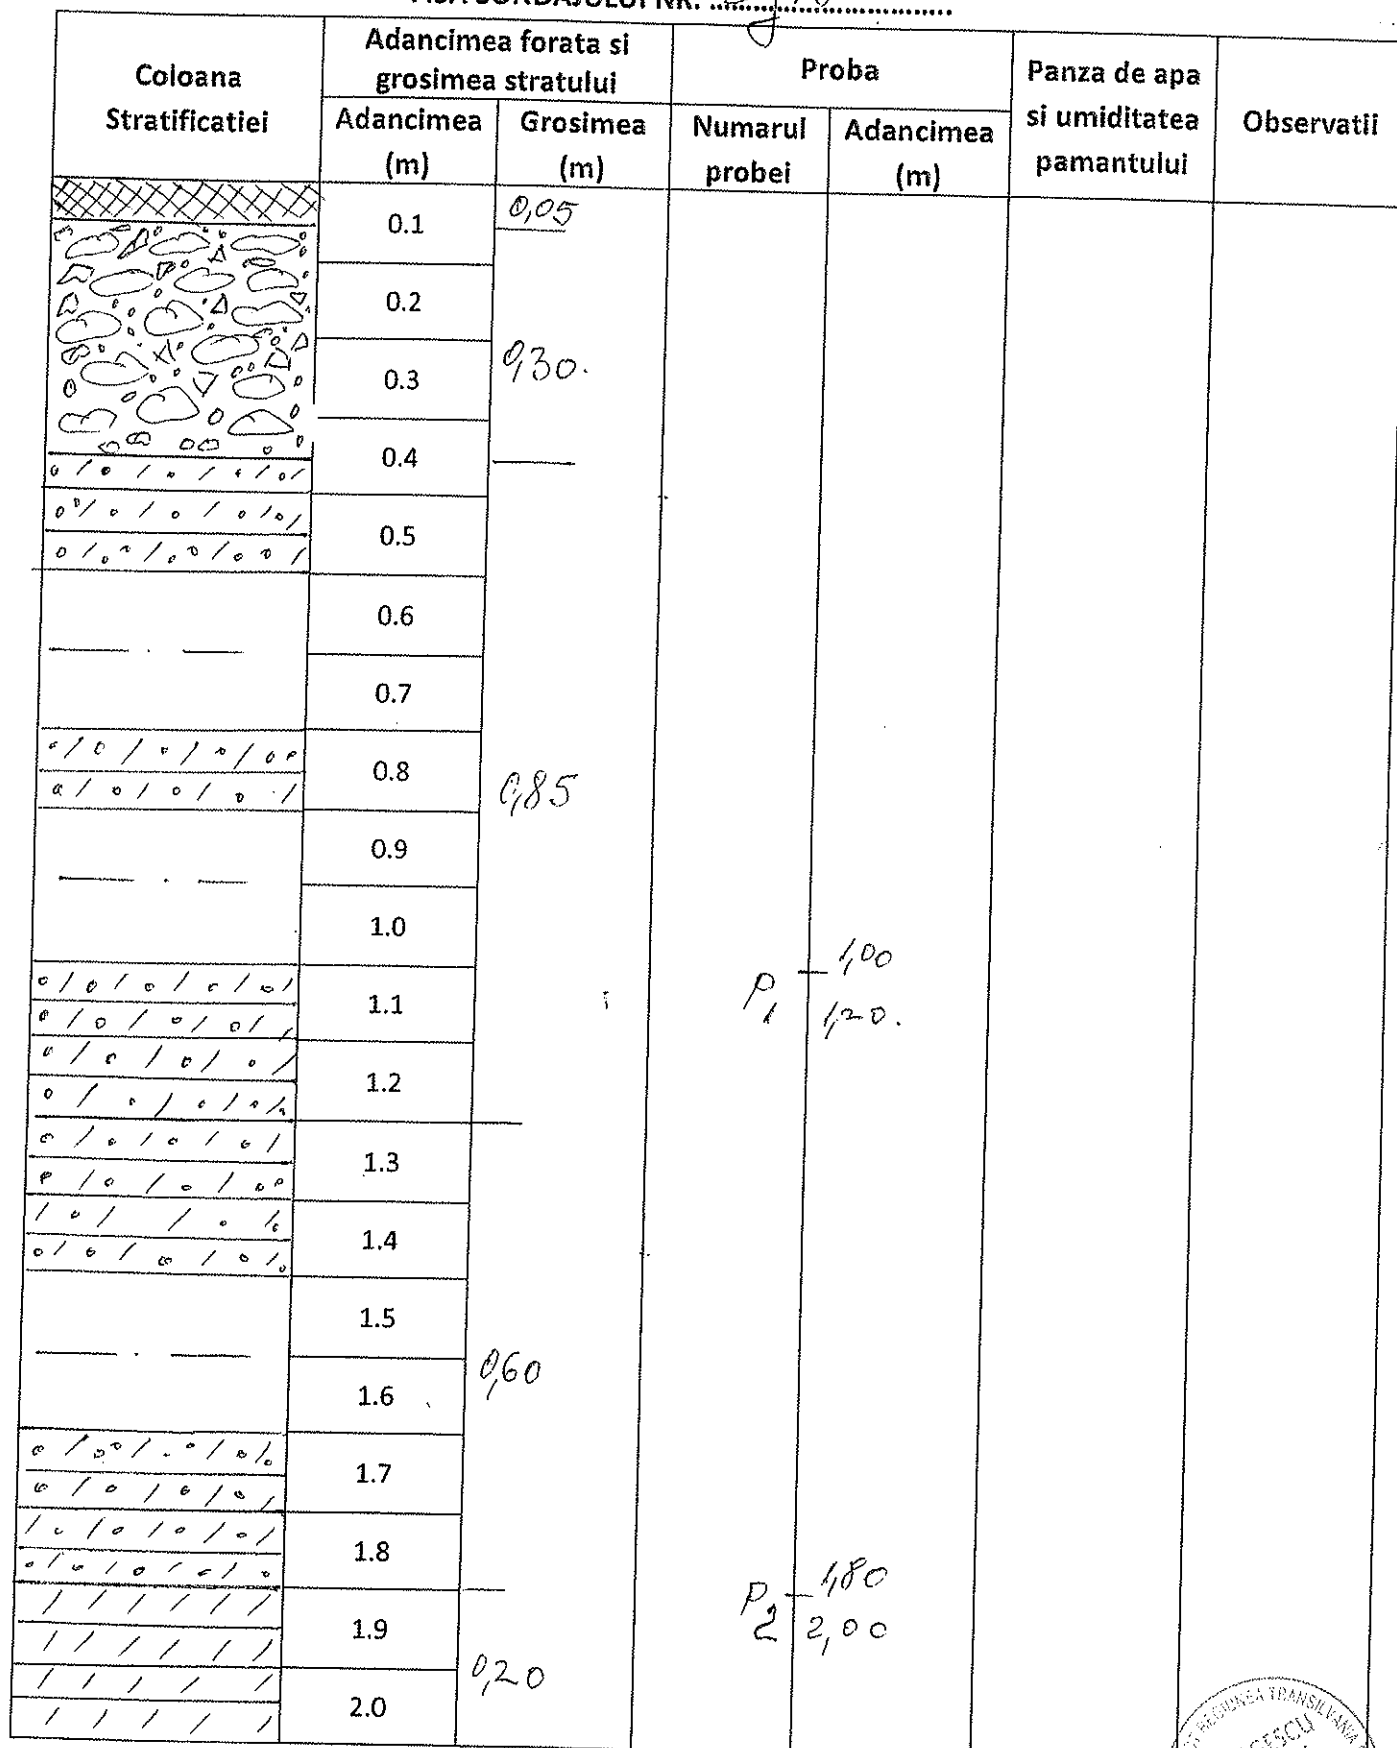 Coloana
Stratificatiei
Adancimea forata si
grosimea stratului
Adancimea
(m)
Grosimea
(m)
Proba
Numarul
probei
Adancimea
(m)
Panza de apa
si umiditatea
pamantului
Observatii
0.1
0,05
0.2
0.3
0,30.
0.4
0.5
0.6
0.7
0.8
0,85
0.9
1.0
1.1
P1
1,00
1,20.
1.2
1.3
1.4
1.5
1.6
0,60
1.7
1.8
1.9
P2
1,80
2,00
2.0
0,20
REGIUNEA TRANSILVANIA